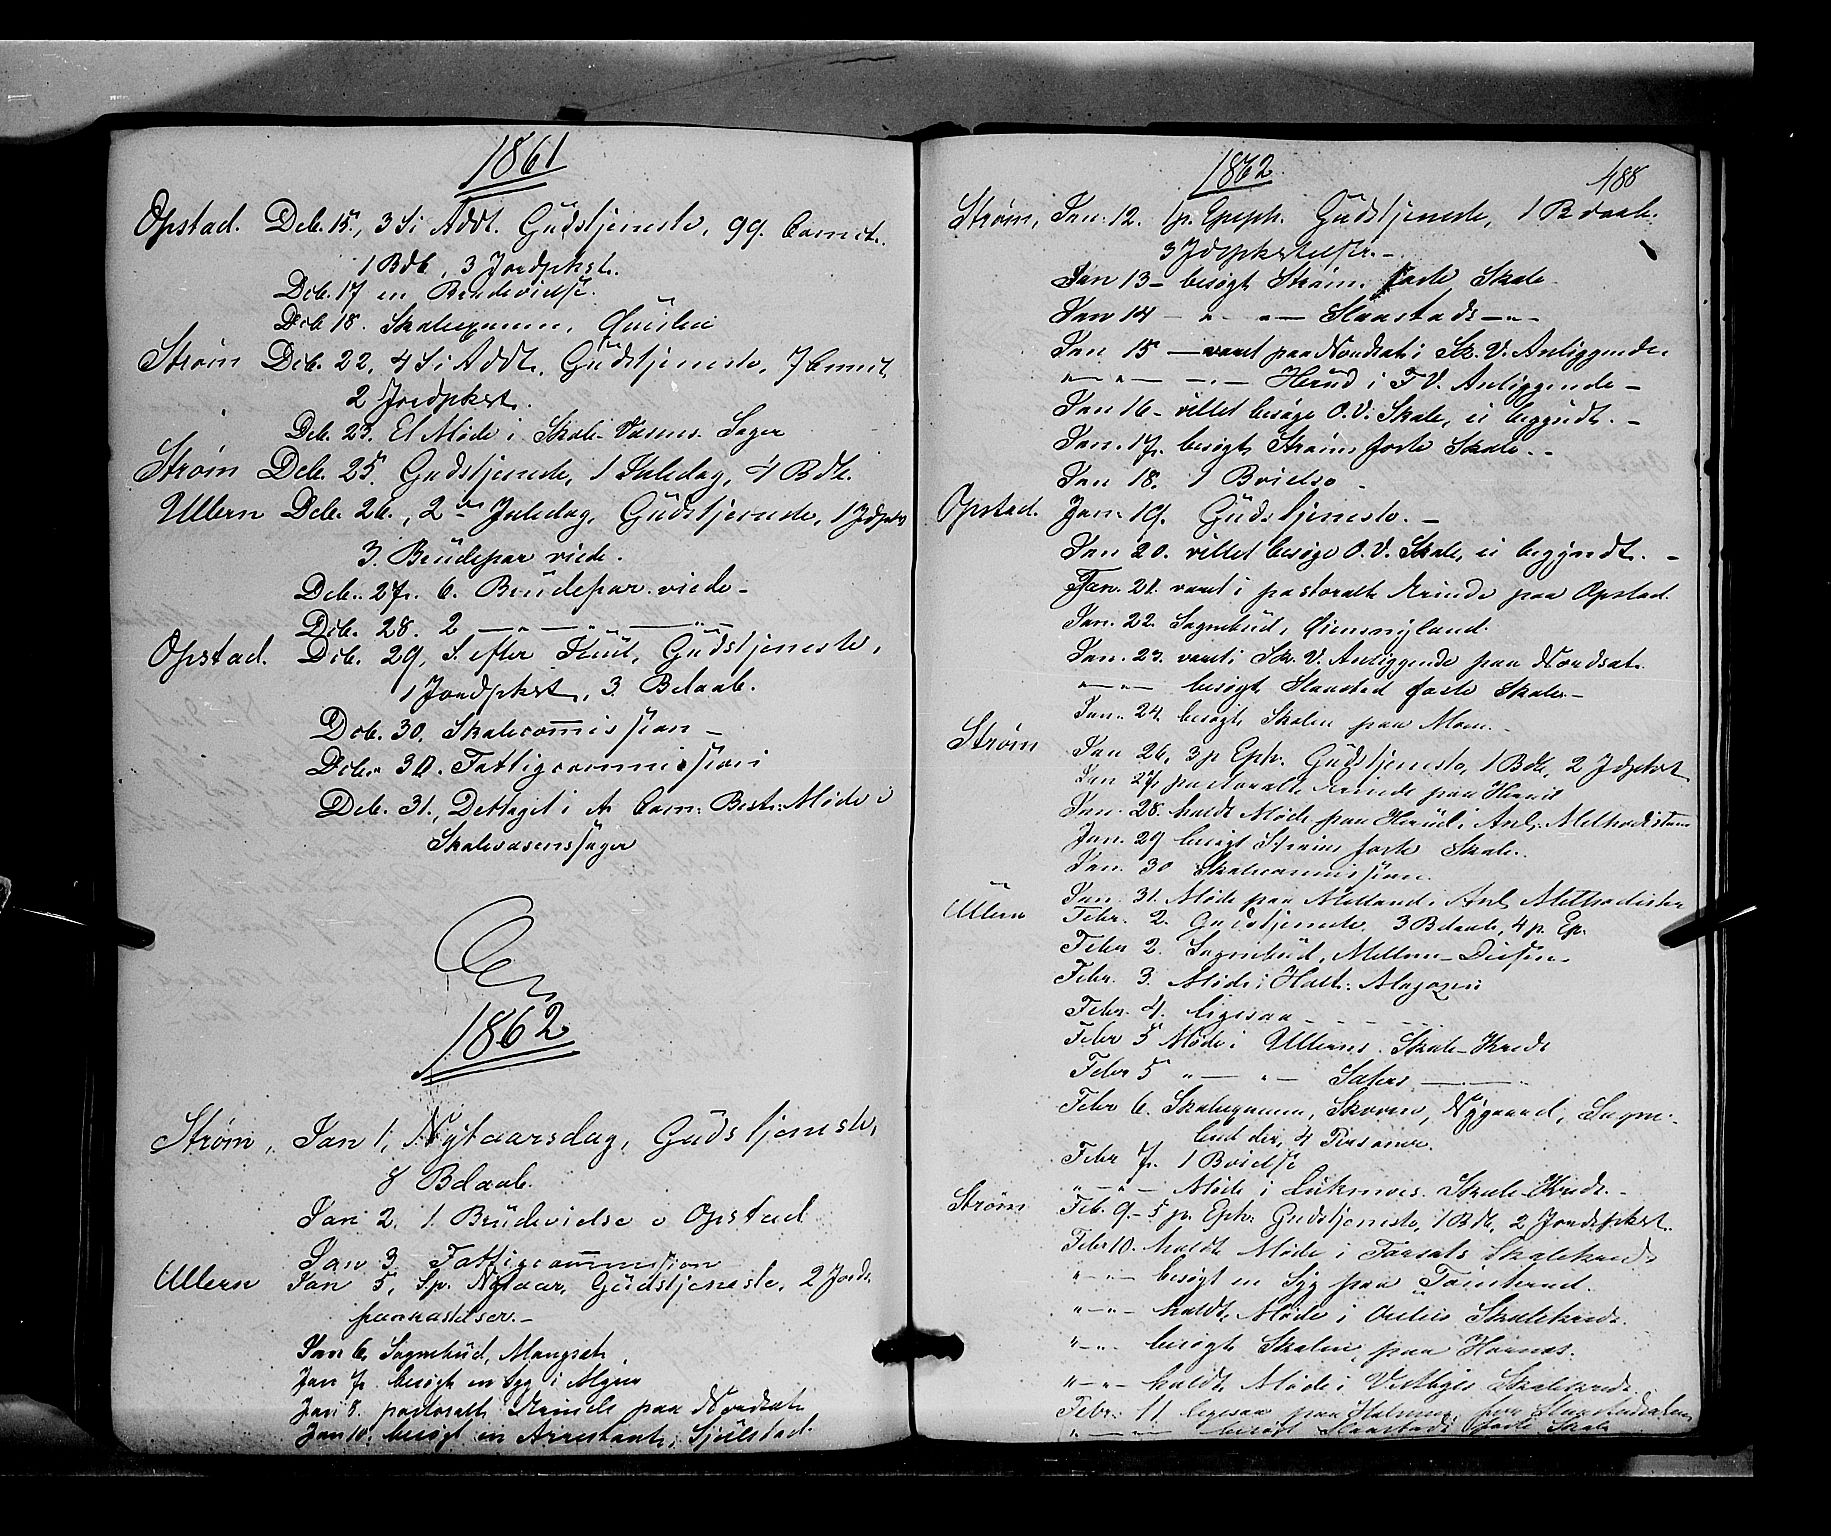 1861
Opstad. Dcb. 15, 3 Si Advt. Gudstjeneste, 99. Comct.
1 Bdb, 3 Jordpkst.
Dcb. 17 en Brudevielse.
Dcb 18. Skoleexamen,
Strøm Dcb. 22, 4 Si Advt. Gudstjeneste, 7 Comct,
2 Jordpkst.
Dcb. 23. Et Møde i Skole-Væsens Sager
Strøm Dcb. 25. Gudstjeneste, 1 Juledag, 4 Bdb.
Ullern Dcb. 26., 2den Juledag, Gudstjeneste, 1 Jdpkst
3. Brudepar viede.
Dcb. 27. 6. Brudepar viede -
Dcb. 28. 2 — „ — „ — „ —
Opstad. Dcb. 29, S. efter Juul, Gudstjeneste,
1 Jordpkst, 3 Bdaab.
Dcb. 30. Skolecommission -
Dcb. 30. Fattigcommission
Dcb. 31., Deltaget i Com: Best: Møde i
Skolevæsenssager
1862
Strøm, Jan 1, Nytaarsdag, Gudstjeneste,
8 Bdaab.
Jan 2. 1. Brudevielse i Opstad
Jan 3. Fattigcommission
Ullern Jan 5, Sp. Nytaar, Gudstjeneste, 2 Jords
paakastelser. -
Jan 6. Sognebud, Mangset.
Jan 7. besøgt en Syg i
Jan 8. pastoralt Ærinde paa Nordset
Jan 10. besøgt en Arrestant, Sjølstad.
1862.
188
Strøm, Jan. 12. 1 p. Epiph. Gudstjeneste, 1 Bdaab.
3 Jdpkstelser. -
Jan 13 - besøgt Strøms faste Skole
Jan 14 - „ - „ - Slaastads - „ -
Jan 15 - været paa Nordset i Sk. V. Anliggende.
„ - „ - - „ - Herud i F. V. Anliggende -
Jan 16 - villet besøge O. V. Skole, ei begyndt. -
Jan. 17. besøgt Strøms faste Skole. -
Jan 18. 1 Bvielse -
Opstad. Jan. 19. Gudstjeneste. -
Jan 20. villet besøge O. V. Skole, ei begyndt. -
Jan. 21. været i pastoralt Ærinde paa Opstad.
Jan. 22. Sognebud,
Jan. 23. været i Sk. V. Anliggende paa Nordset.
„ - „ - besøgt Slaastad faste Skole -
Jan. 24. besøgt Skolen paa Moen. -
Strøm Jan 26, 3 p Eph. Gudstjeneste, 1 Bdb, 2 Jdpkst
Jan 27, pastoralt Ærinde paa Herud
Jan. 28. holdt Møde paa Herud i Anl. Methodisterne
Jan. 29 besøgt Strøms faste Skole.
Jan. 30 Skolecommission.
Jan. 31. Møde paa i Anl. Methodister
Ullern Febr. 2. Gudstjeneste 3 Bdaab, 4 p. Ep.
Febr 2. Sognebud, Mellem-Disen -
Febr. 3. Møde i Magazin
Febr. 4. ligesaa - - - -
Febr 5 Møde i Ullerns Skole-Kreds
Febr 5 „ - „ - Sæters - - -
Febr 6. Skoleexamen, Skoven, Nygaard, Sogne-
bud der, 4 Personer.
Febr 7. 1 Bvielse
„ - „ - Møde i Skole-Kreds. -
Strøm Feb. 9. - 5 p. Eph. Gudstjeneste, 1 Bdb, 2 Jordspkst.
Febr 10. holdt Møde i Skolekreds
„ - „ - besøgt en Syg paa
„ - „ - holdt Møde i Skolekreds.
„ - „ - besøgt Skolen paa
„ - „ - holdt Møde i Vestbyes Skolekreds.
Febr. 11. ligesaa paa for
„ - „ - besøgt Slaastads faste Skole